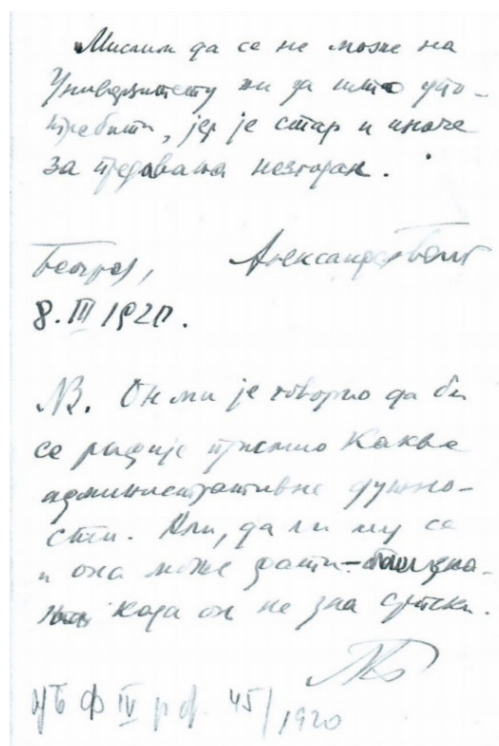 Мислим да се не може на
Универзитету ни за што упо-
требити, јер је стар и иначе
за предавања незгодан.
Београд, Александар Белић
8. III 1920.
NB. Он ми је говорио да би
се радије примио какве
административне дужно-
сти. Али, да ли му се
и она може дати –
када он не зна српски.
АБ
ф IV р. 45/1920